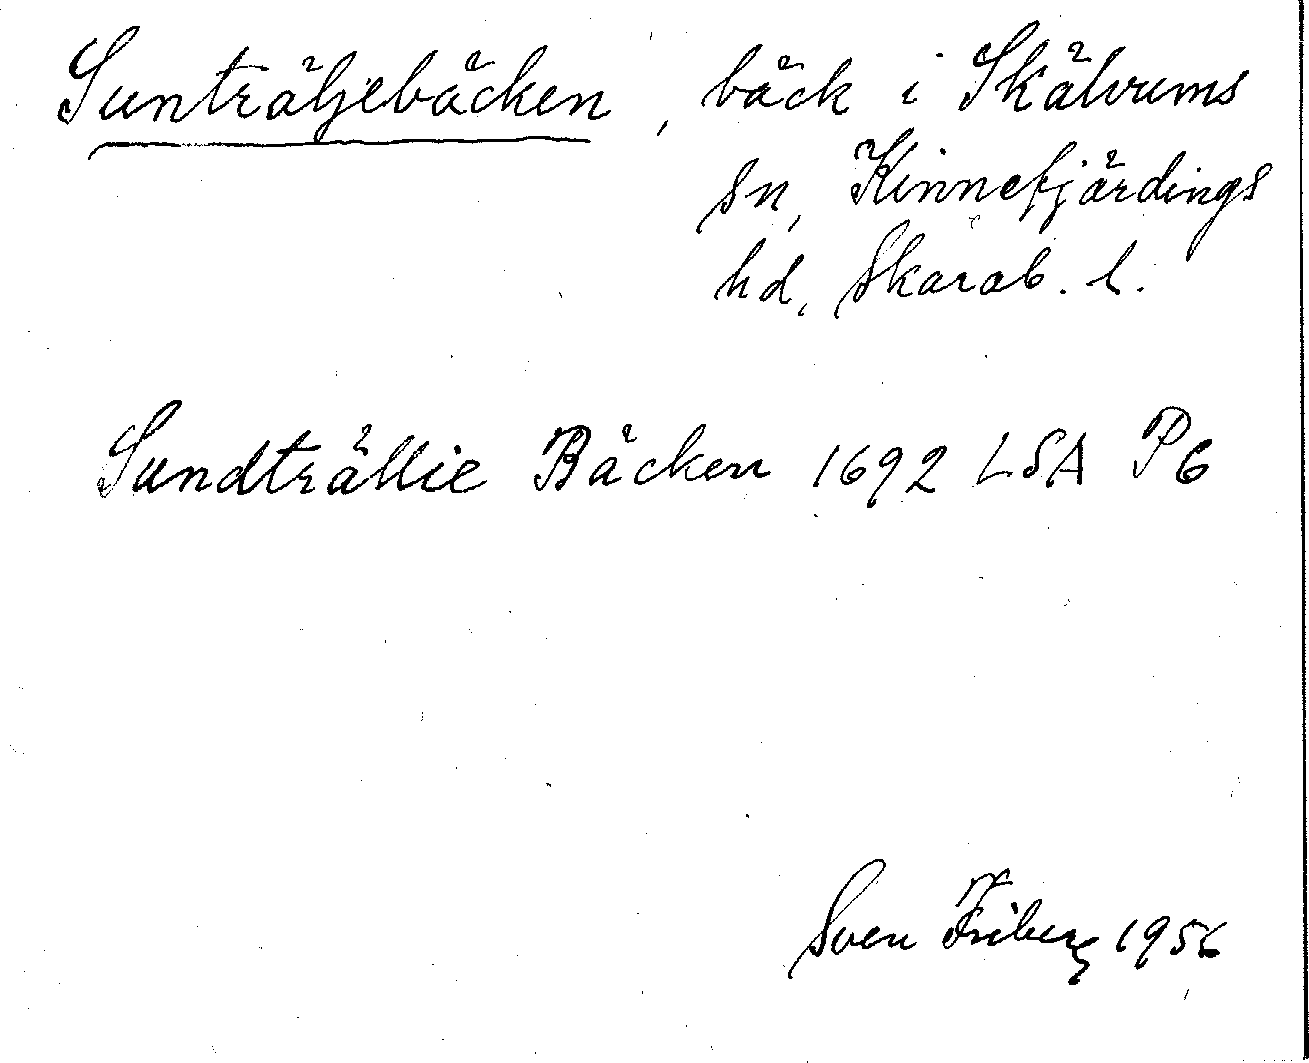 Sunträljebäcken, bäck i Skälvums
sn, Kinnefjärdings
hd, Skarab. l.
Sundträllie Bäcken 1692 LSA P6
Sven Friberg 1956